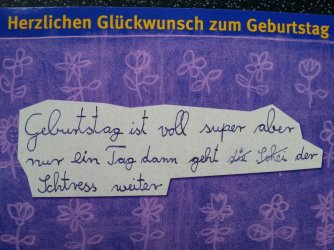 Herzlichen Glückwunsch zum Geburtstag
Geburtstag ist voll super aber
nur ein Tag dann geht der
Schtress weiter